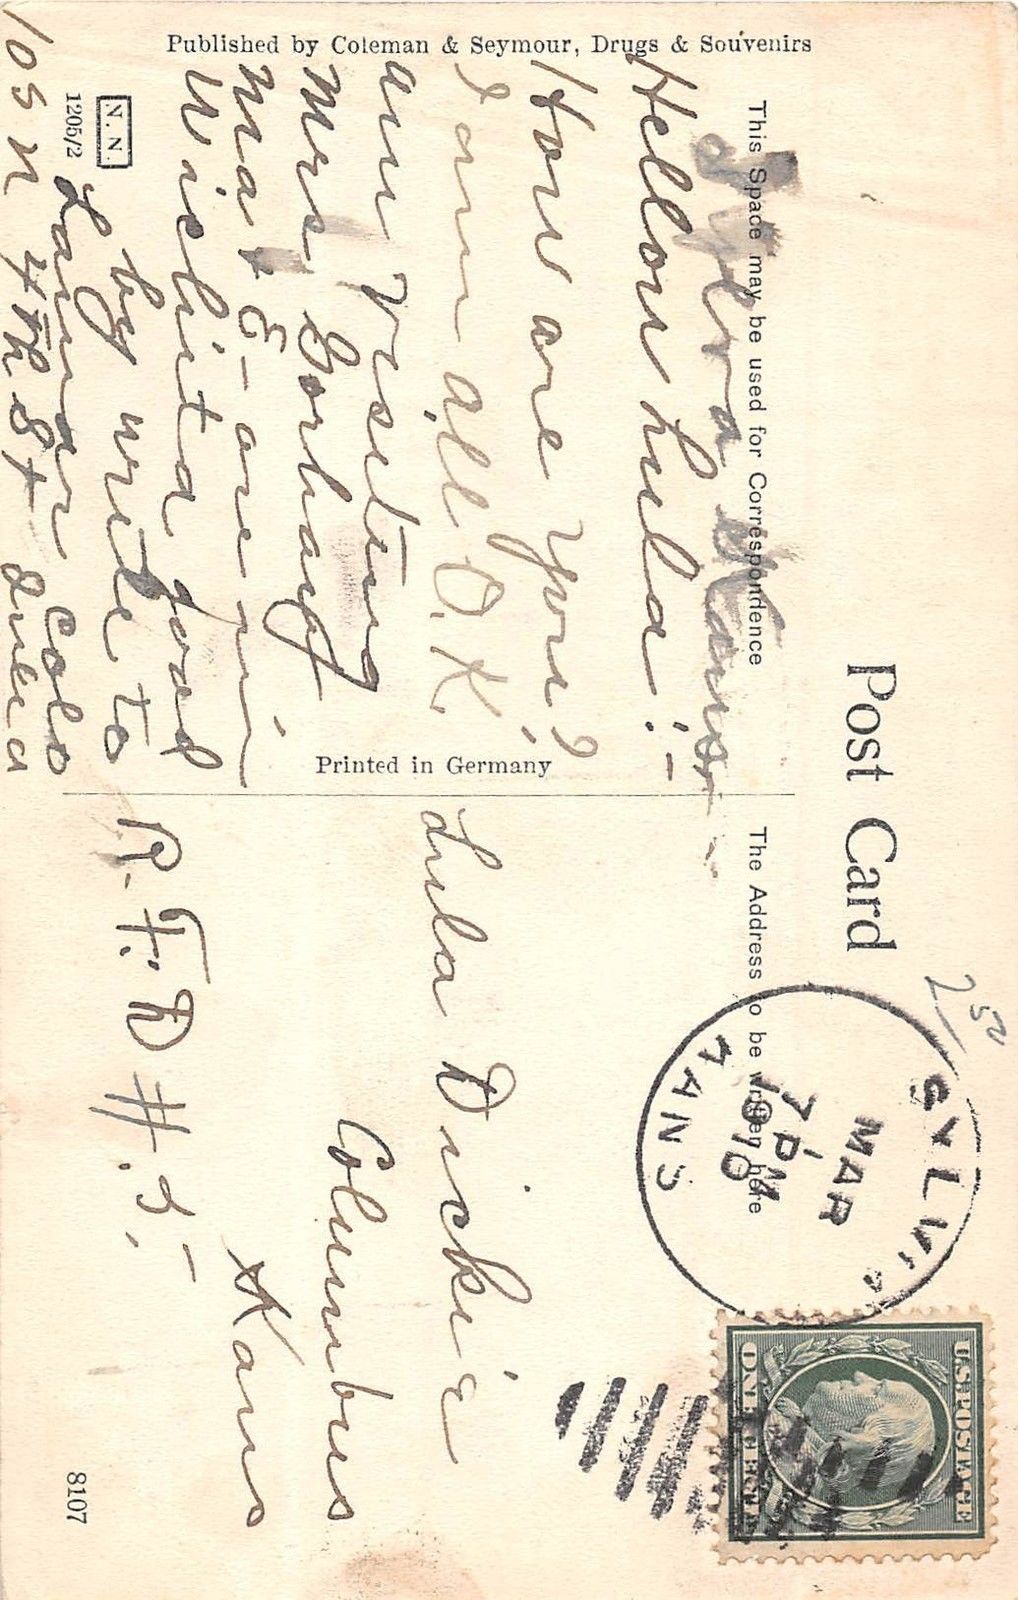 Published by Coleman & Seymour, Drugs & Souvenirs
Post Card
This Space may be used for Correspondence
The Address to be written here
Sylvia Kans.-
Hellow Lula!-
How are you?
I am all O.K.
am visiting
Mrs
Ma & E- are in
Wichita good
by write to
Lamar Colo
105 N 4th St
Printed in Germany
N. N.
1205/2
Lula Dickie
Columbus
Kans
R.F.D #.5,-
8107
SYLVIA
MAR
7 PM
1910
KANS
U.S. POSTAGE
ONE CENT
2 50